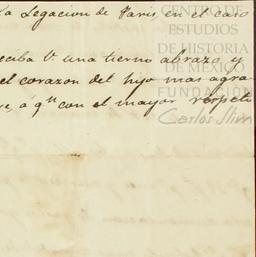 la Legacion de Paris en el caso
eciba V. una tierno abrazo, y
el corazon del hijo mas agra
e, á qn con el mayor respeto
CENTRO DE
ESTUDIOS
DE HISTORIA
DE MÉXICO
FUNDACIÓN
Carlos Slim